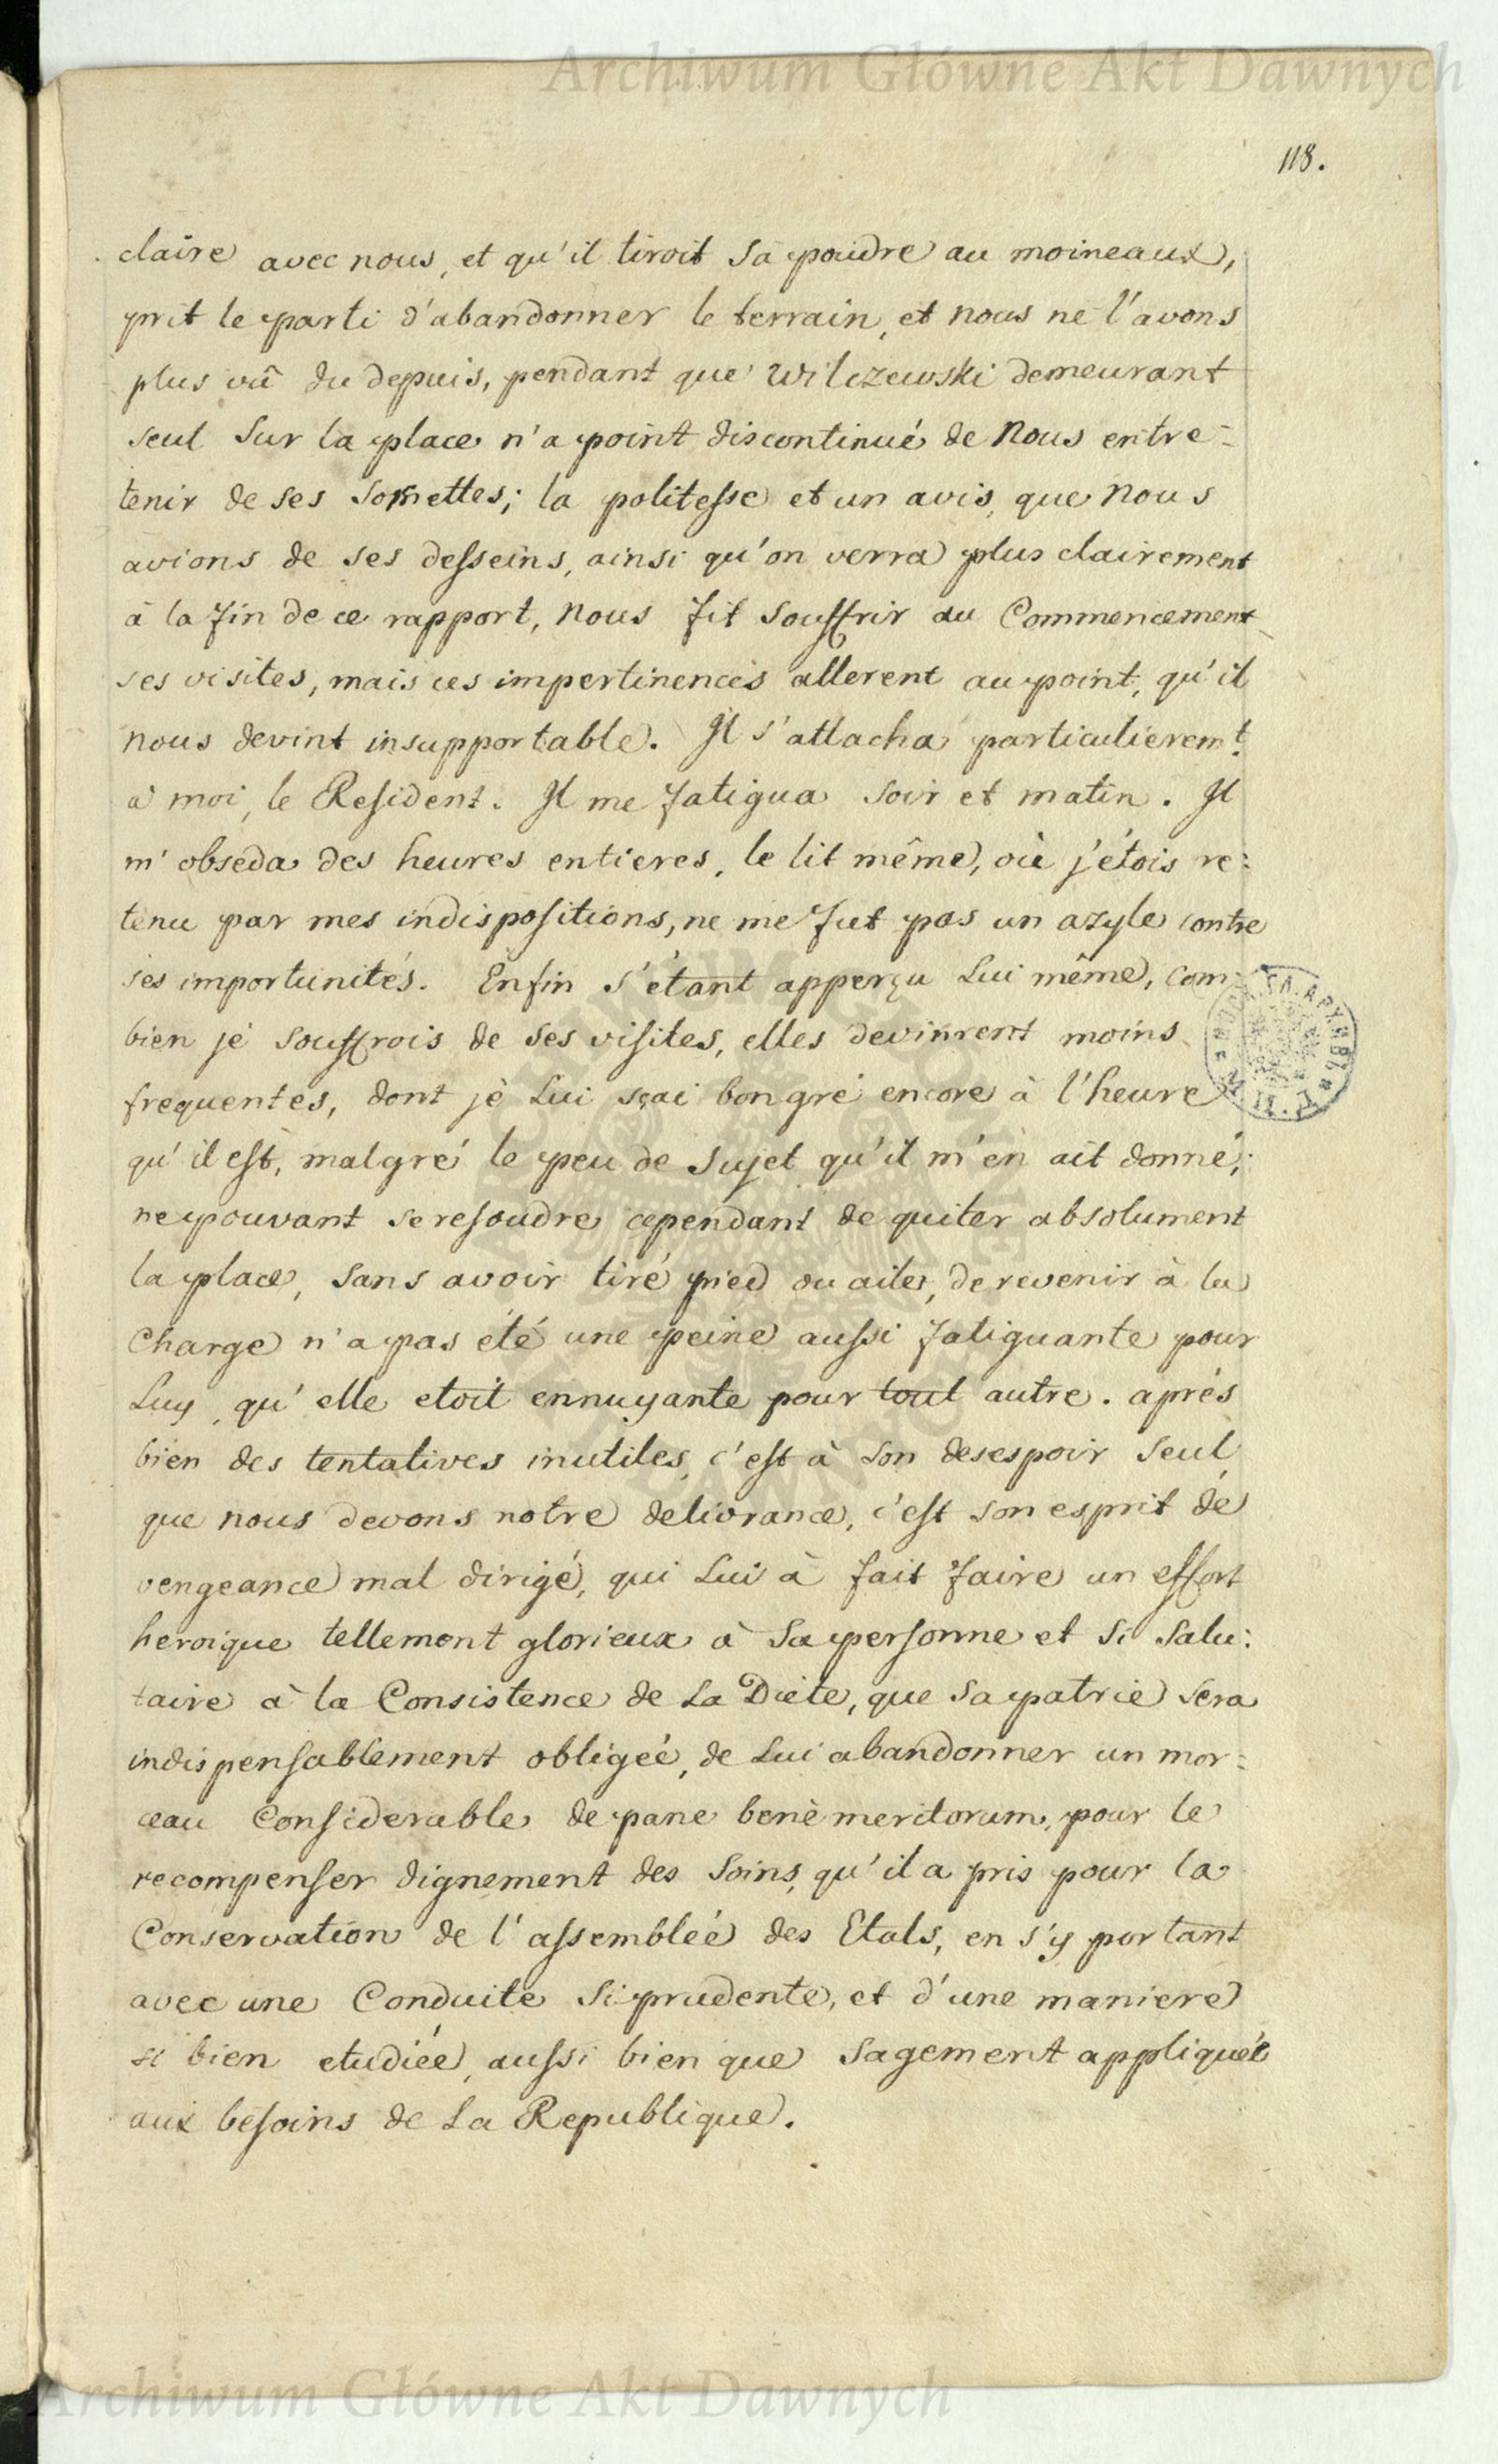 Archiwum Główne Akt Dawnych
118.
claire avec nous, et qu'il tiroit sa poudre au moineaux,
prit le parti d'abandonner le terrain, et nous ne l'avons
plus vû du depuis, pendant que Wilczewski demeurant
seul sur la place n'a point discontinué de Nous entre=
tenir de ses sornettes; la politesse et un avis, que Nous
avions de ses desseins, ainsi qu'on verra plus clairement
à la fin de ce rapport, Nous fit souffrir au Commencement
ses visites, mais ces impertinences allerent au point, qu'il
nous devint insupportable. Il s'attacha particulierem.t
à moi, le Resident. Il me fatigua soir et matin. Il
m'obseda des heures entieres, le lit même, où j'étois re:
tenu par mes indispositions, ne me fut pas un azyle contre
ses importunités. Enfin s'étant apperçu Lui même, com:
bien je souffrois de ses visites, elles devinrent moins
frequentes, dont je Lui sçai bon gré encore à l'heure
qu'il est, malgré le peu de sujet qu'il m'en ait donné;
ne pouvant se resoudre cependant de quiter absolument
la place, sans avoir tiré pied ou ailes, de revenir à la
Charge n'a pas été une peine aussi fatiguante pour
Luy, qu'elle etoit ennuyante pour tout autre. aprés
bien des tentatives inutiles, c'est à son desespoir seul,
que nous devons notre delivrance, c'est son esprit de
vengeance mal dirigé, qui Lui à fait faire un effort
heroique tellement glorieux à sa personne et si salu:
taire à la Consistence de La Diete, que sa patrie sera
indispensablement obligée, de Lui abandonner un mor=
ceau Considerable de pane benè meritorum, pour le
recompenser dignement des soins, qu'il a pris pour la
Conservation de l'assemblée des Etats, en s'y portant
avec une Conduite si prudente, et d'une maniere
si bien etudiée, aussi bien que sagement appliquée
aux besoins de La Republique.
Archiwum Główne Akt Dawnych